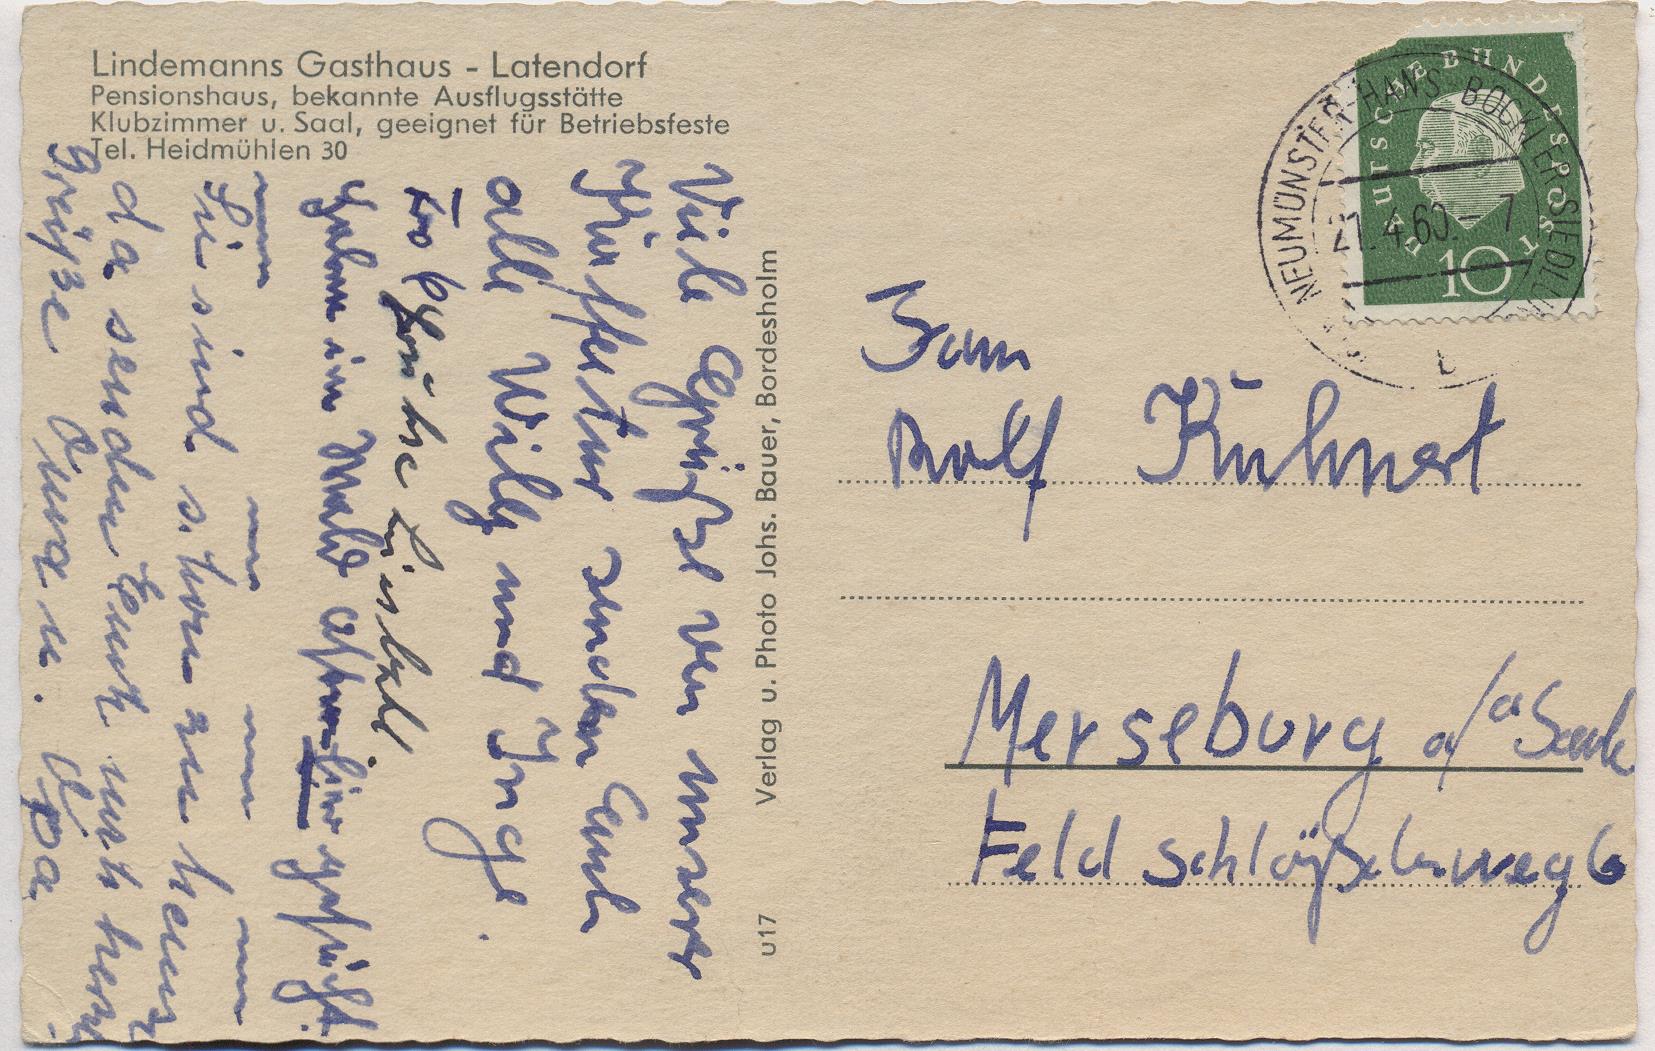 Lindemanns Gasthaus - Latendorf
Pensionshaus, bekannte Ausflugsstätte
Klubzimmer u. Saal, geeignet für Betriebsfeste
Tel. Heidmühlen 30
Viele Grüße von unserer
senden Euch
alle Willy und Inge.
Haben im Wald gesucht.
Sie sind schon zu Hause
da senden Euch noch herz.
Grüße Oma u. Opa.
Verlag u. Photo Johs. Bauer, Bordesholm
u17
DEUTSCHE BUNDESPOST
10
NEUMÜNSTER-HANS BÖCKLER-SIEDLUNG
21.4.60.-7
b
Fam
Rolf Kuhnert
Merseburg a/a Saale
Feldschlößchenweg 6